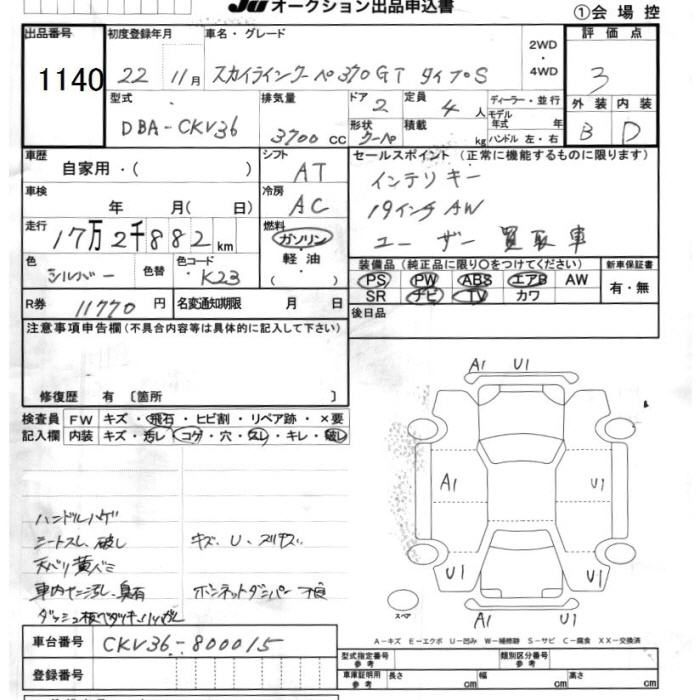 JU オークション出品申込書
①会場控
出品番号 1140
初度登録年月 22 11月
車名・グレード スカイラインクーペ370GT タイプS
2WD・4WD
評価点 3
外装 B 内装 D
型式 DBA-CKV36
排気量 3700 cc
ドア 2
形状 クーペ
定員 4 人
積載 kg
ディーラー・並行
モデル年式 年
ハンドル 左・右
車歴 自家用・( )
シフト AT
冷房 AC
車検 年 月(日)
走行 17万2千882km
燃料 ガソリン・軽油・( )
色 シルバー 色替 色コード K23
R券 11770円
名変通知期限 月 日
セールスポイント(正常に機能するものに限ります)
インテリキー
19インチAW
ユーザー買取車
装備品(純正品に限り○をつけてください)
PS PW ABS エアB AW
SR ナビ TV カワ
新車保証書 有・無
後日品
注意事項申告欄(不具合内容等は具体的に記入して下さい)
修復歴 有〔箇所 〕
検査員記入欄
FW キズ・飛石・ヒビ割・リペア跡・×要
内装 キズ・汚レ・コゲ・穴・スレ・キレ・破レ
ハンドルハゲ
シートスレ、破レ
天バリ黄バミ
車内ヤニ汚レ、臭有
キズ、U、スリキズ
ボンネットダンパー
A1 U1
A1 U1
U1 U1
A1 U1
スペア
A-キズ E-エクボ U-凹み W-補修跡 S-サビ C-腐食 XX-交換済
車台番号 CKV36-800015
登録番号
型式指定番号 参考
類別区分番号 参考
車庫証明用 参考 長さ cm 幅 cm 高さ cm